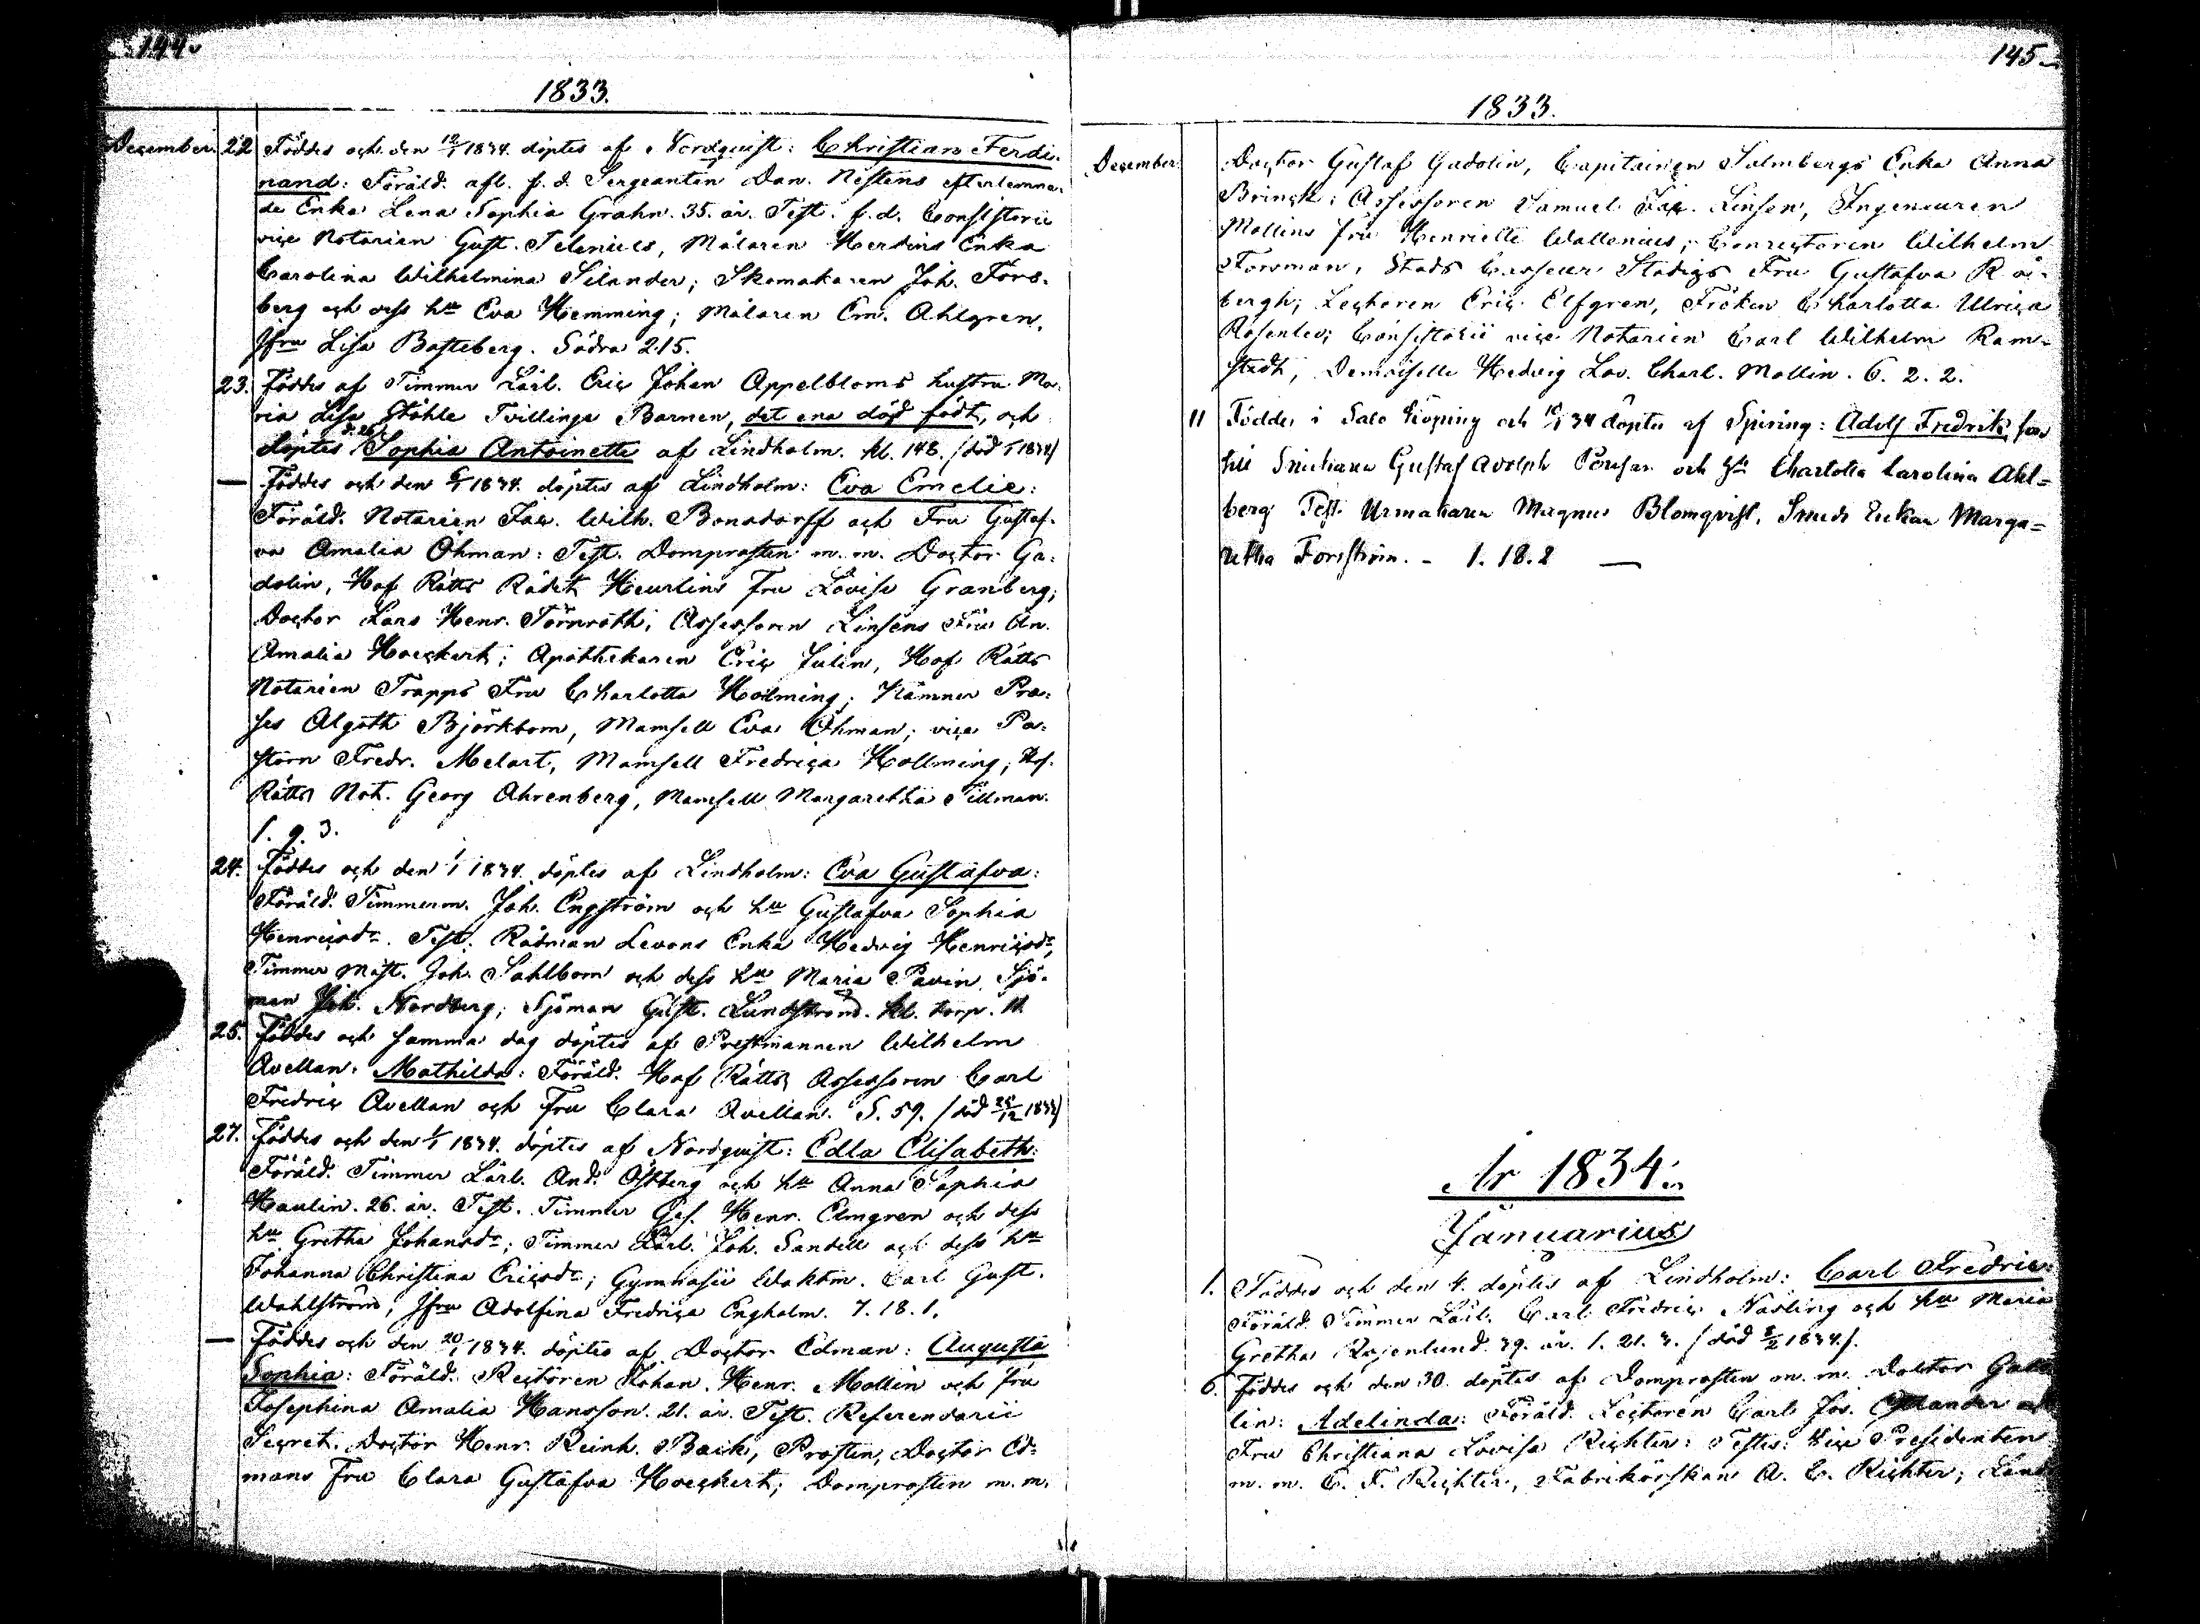 144.
1833.
December. 22 Föddes och den 12/1 1834. döptes af Nordquist: Christian Ferdi-
nand: Föräld. afl. f.d. Sergeanten Dan. Nestens efterlemna-
de Enka Lena Sophia Grahn. 35. år. Test. f.d. Consistorii
vice Notarien Gust. Telenius, Målaren Herdins Enka
Carolina Wilhelmina Silander; Skomakaren Joh. Fors-
berg och dess hu Eva Hemming; Målaren Em. Ahlgren,
Jfru Lisa Basteberg. Södra 215.
23. Föddes af Timmer Lärl. Eric Johan Appelbloms hustru Ma-
ria Lisa Ståhle Tvillinge Barnen, det ena död födt, och
d. 26
döptes Sophia Antoinette af Lindholm. kl. 148. (död 1834)
— Föddes och den 6/1 1834. döptes af Lindholm: Eva Emelie:
Föräld. Notarien Jac. Wilh. Bonsdorff och Fru Gustaf-
va Amalia Öhman: Test. Domprosten m.m. Doctor Ga-
dolin, Hof Rätts Rådet Heurlins Fru Lovisa Granberg;
Doctor Lars Henr. Törnroth; Assessoren Linsens Fru An.
Amalia Hoeckert; Apothekaren Eric Julin, Hof Rätts
Notarien Trapps Fru Charlotta Hollming; Kämner Præ-
ses Algoth Björkbom, Mamsell Eva Öhman; vice Pa-
storn Fredr. Melart, Mamsell Fredrica Hollming; Hof-
Rätts Not. Georg Ahrenberg, Mamsell Margaretha Tillman.
1. 9. 3.
24. Föddes och den 1/1 1834. döptes af Lindholm: Eva Gustafva:
Föräld. Timmerm. Joh. Engström och hu Gustafva Sophia
Henricsdr. Test. Rådman Levons Enka Hedvig Henricsdr,
Timmer Mäst. Joh. Sahlbom och dess hu Maria Pavin, Sjö-
man Joh. Nordberg; Sjöman Gust. Lundström. kl. torp. 11.
25. Föddes och samma dag döptes af Prestmannen Wilhelm
Avellan: Mathilda: Föräld. Hof Rätts Assessoren Carl
Fredric Avellan och Fru Clara Avellan. S. 59. (död 25/12 1833)
27. Föddes och den 1/1 1834. döptes af Nordquist: Edla Elisabeth:
Föräld. Timmer Lärl. And. Östberg och hu Anna Sophia
Haulin. 26. år. Test. Timmer Ges. Henr. Elmgren och dess
hu Gretha Johansdr; Timmer Lärl. Joh. Sandell och dess hu
Johanna Christina Ericsdr; Gymnasii Waktm. Carl Gust.
Wahlström; Jfru Adolfina Fredrica Engholm. 7. 18. 1.
— Föddes och den 20/1 1834. döptes af Doctor Edman: Augusta
Sophia: Föräld. Rectoren Johan Henr. Mollin och Fru
Josephina Amalia Hansson. 21. år. Test. Referendarii
Secret. Doctor Henr. Reinh. Back, Prosten, Doctor Ed-
mans Fru Clara Gustafva Hoeckert; Domprosten m.m.
145.
1833.
December. Doctor Gustaf Gadolin, Capitainen Salmbergs Enka Anna
Brinck; Assessoren Samuel Jac. Linsen, Ingenieuren
Mollins fru Henriette Wallenius; Conrectoren Wilhelm
Forsman, Stads Casseur Stadigs Fru Gustafva
bergh; Lectoren Eric Elfgren, Fröken Charlotta Ulrica
Rosenlew; Consistorii vice Notarien Carl Wilhelm Ram-
stedt, Demoiselle Hedvig Lov. Charl. Mollin. 6. 2. 2.
11 Föddes i Salo Köping och 10/1 34 döptes af Spiring: Adolf Fredrik,
Gustaf Adolph och Charlotta Carolina Ahl=
berg Test. Urmakaren Magnus Blomqvist, Smeds Enkan Marga=
retha Forsström. - 1. 18. 2 —
År 1834.
Januarius
1. Föddes och den 4. döptes af Lindholm: Carl Fredric:
Föräld. Timmer Lärl. Carl Fredric Nasling och hu Maria
Gretha Rajenlund. 39. år. 1. 21. 3. (död 8/2 1834.).
6. Föddes och den 30. döptes af Domprosten m.m. Doctor Gado
lin: Adelinda: Föräld. Lectoren Carl Jos. Cygnander och
Fru Christiana Lovisa Richter: Testes: Vice Presidenten
m. m. C. F. Richter, Fabriksörskan A. C. Richter; Land